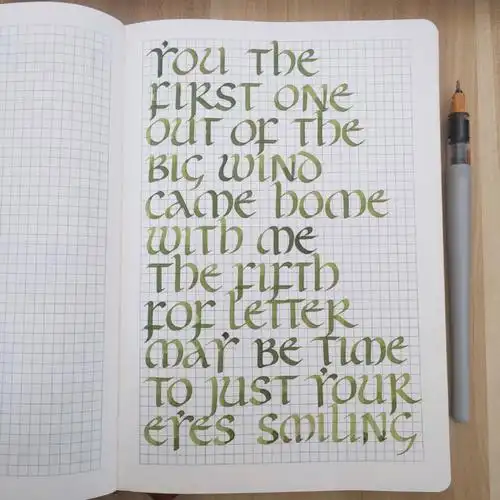 YOU THE
FIRST ONE
OUT OF THE
BIG WIND
CAME HOME
WITH ME
THE FIFTH
FOF LETTER
MAY BE TIME
TO JUST YOUR
EYES SMILING